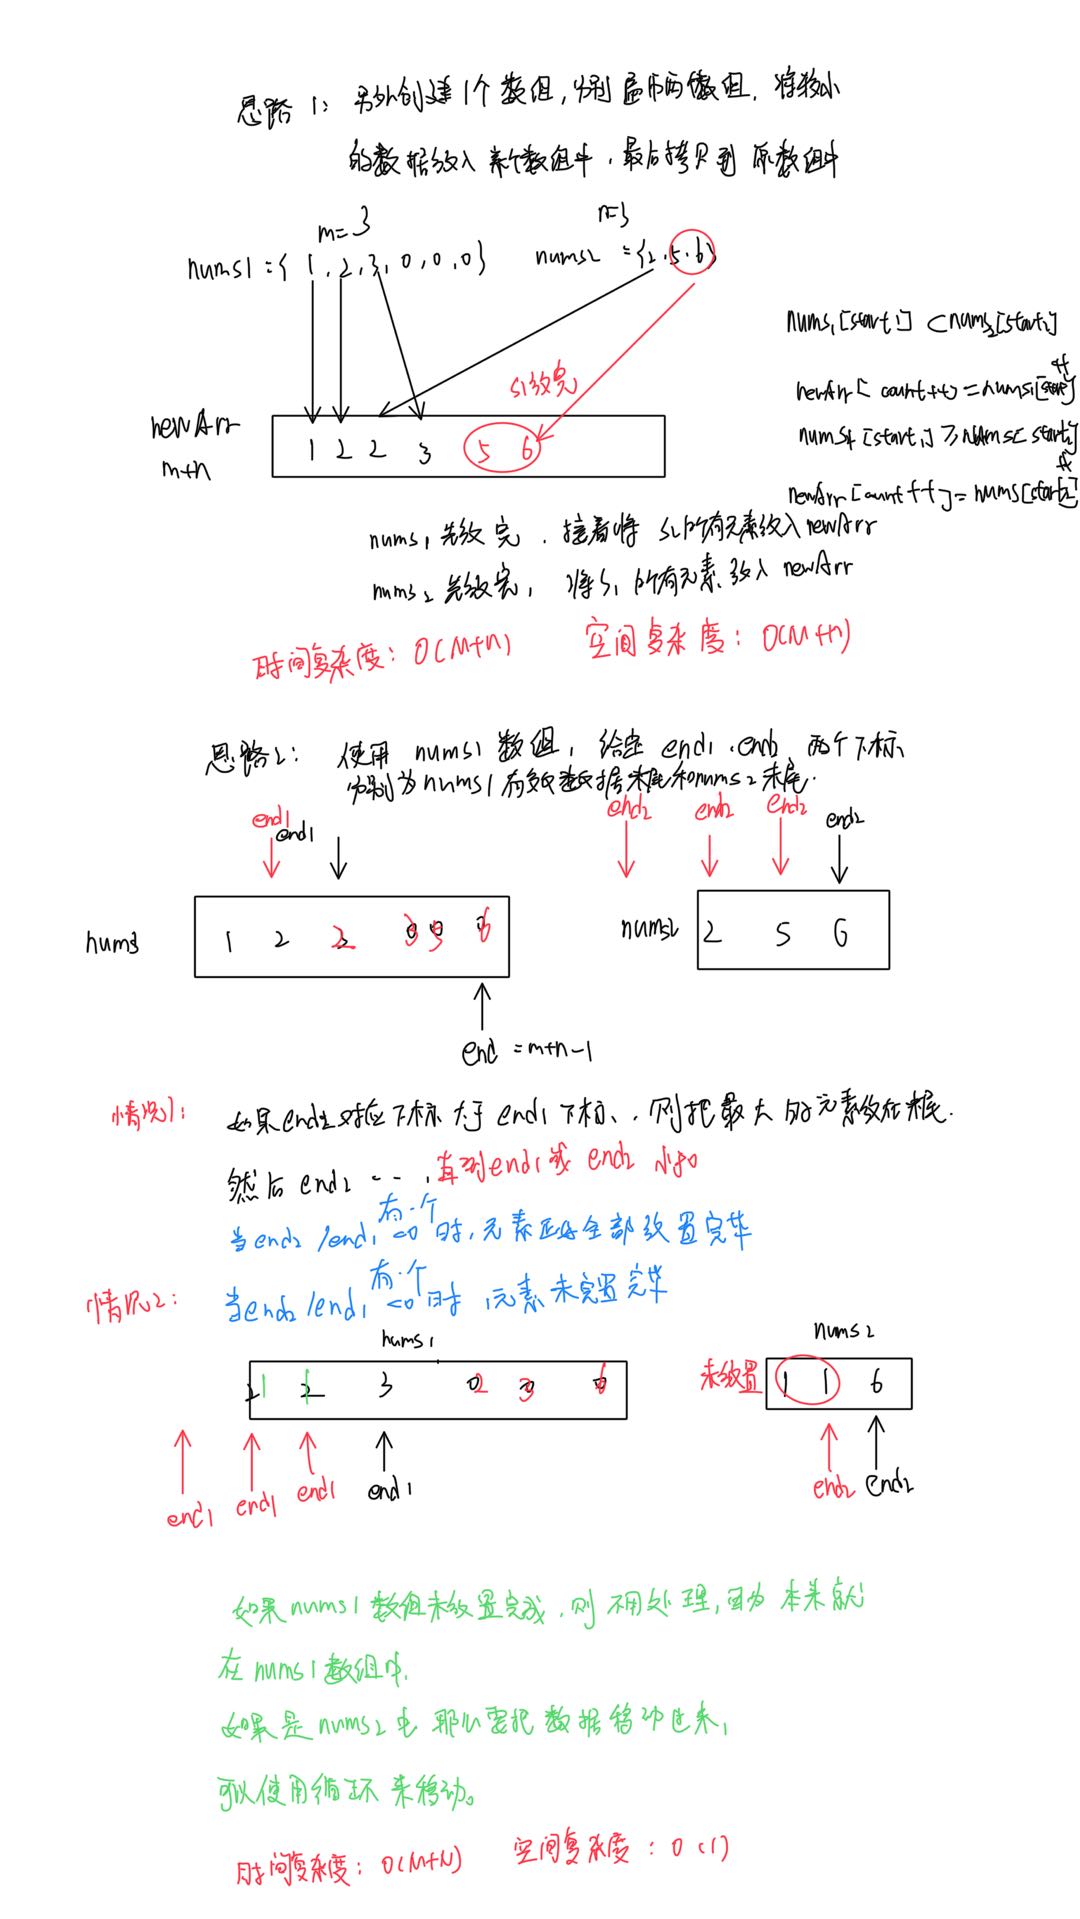 思路1: 另外创建1个数组,分别遍历两数组,将较小
的数据放入新数组中,最后拷贝到原数组中
m=3
n=3
nums1={1,2,3,0,0,0}
nums2={2,5,6}
nums1[start1]<nums2[start2]
newArr[count++]=nums1[start1++]
nums1[start1]≥nums[start2]
newArr[count++]=nums[start2++]
s1放完
newArr
m+n
1 2 2 3 5 6
nums1先放完,接着将s2的所有元素放入newArr
nums2先放完,将s1的所有元素放入newArr
时间复杂度:O(M+N) 空间复杂度:O(M+N)
思路2: 使用nums1数组,给定end1,end2两个下标,
分别为nums1有效数据末尾和nums2末尾.
end1
end1
end2 end2 end2 end2
nums
1 2 2 3 5 6
nums2
2 5 6
end=m+n-1
情况1: 如果end2对应下标大于end1下标,则把最大的元素放在末尾.
然后end2--,直到end1或end2小于0
当end2/end1有一个<0时,元素正好全部放置完毕
情况2: 当end2/end1有一个<0时,元素未完置完毕
nums1
nums2
2 1 2 1 3 0 2 0 3 0 6
未放置
1 1 6
end1 end1 end1 end1
end2 end2
如果nums1数组未放置完成,则不用处理,因为本来就
在nums1数组中.
如果是nums2中 那么要把数据移动过来,
可以使用循环来移动。
时间复杂度:O(M+N) 空间复杂度:O(1)